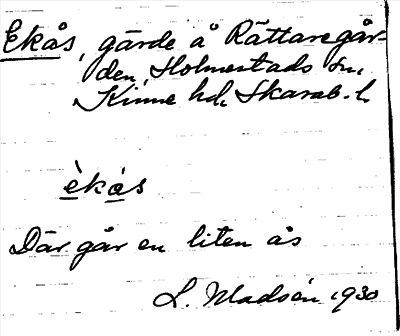 Ekås, gärde å Rättaregår-
den, Holmestads sn,
Kinne hd, Skarab. l.
è̱ka̱s
Där går en liten ås
L. Madsén 1930